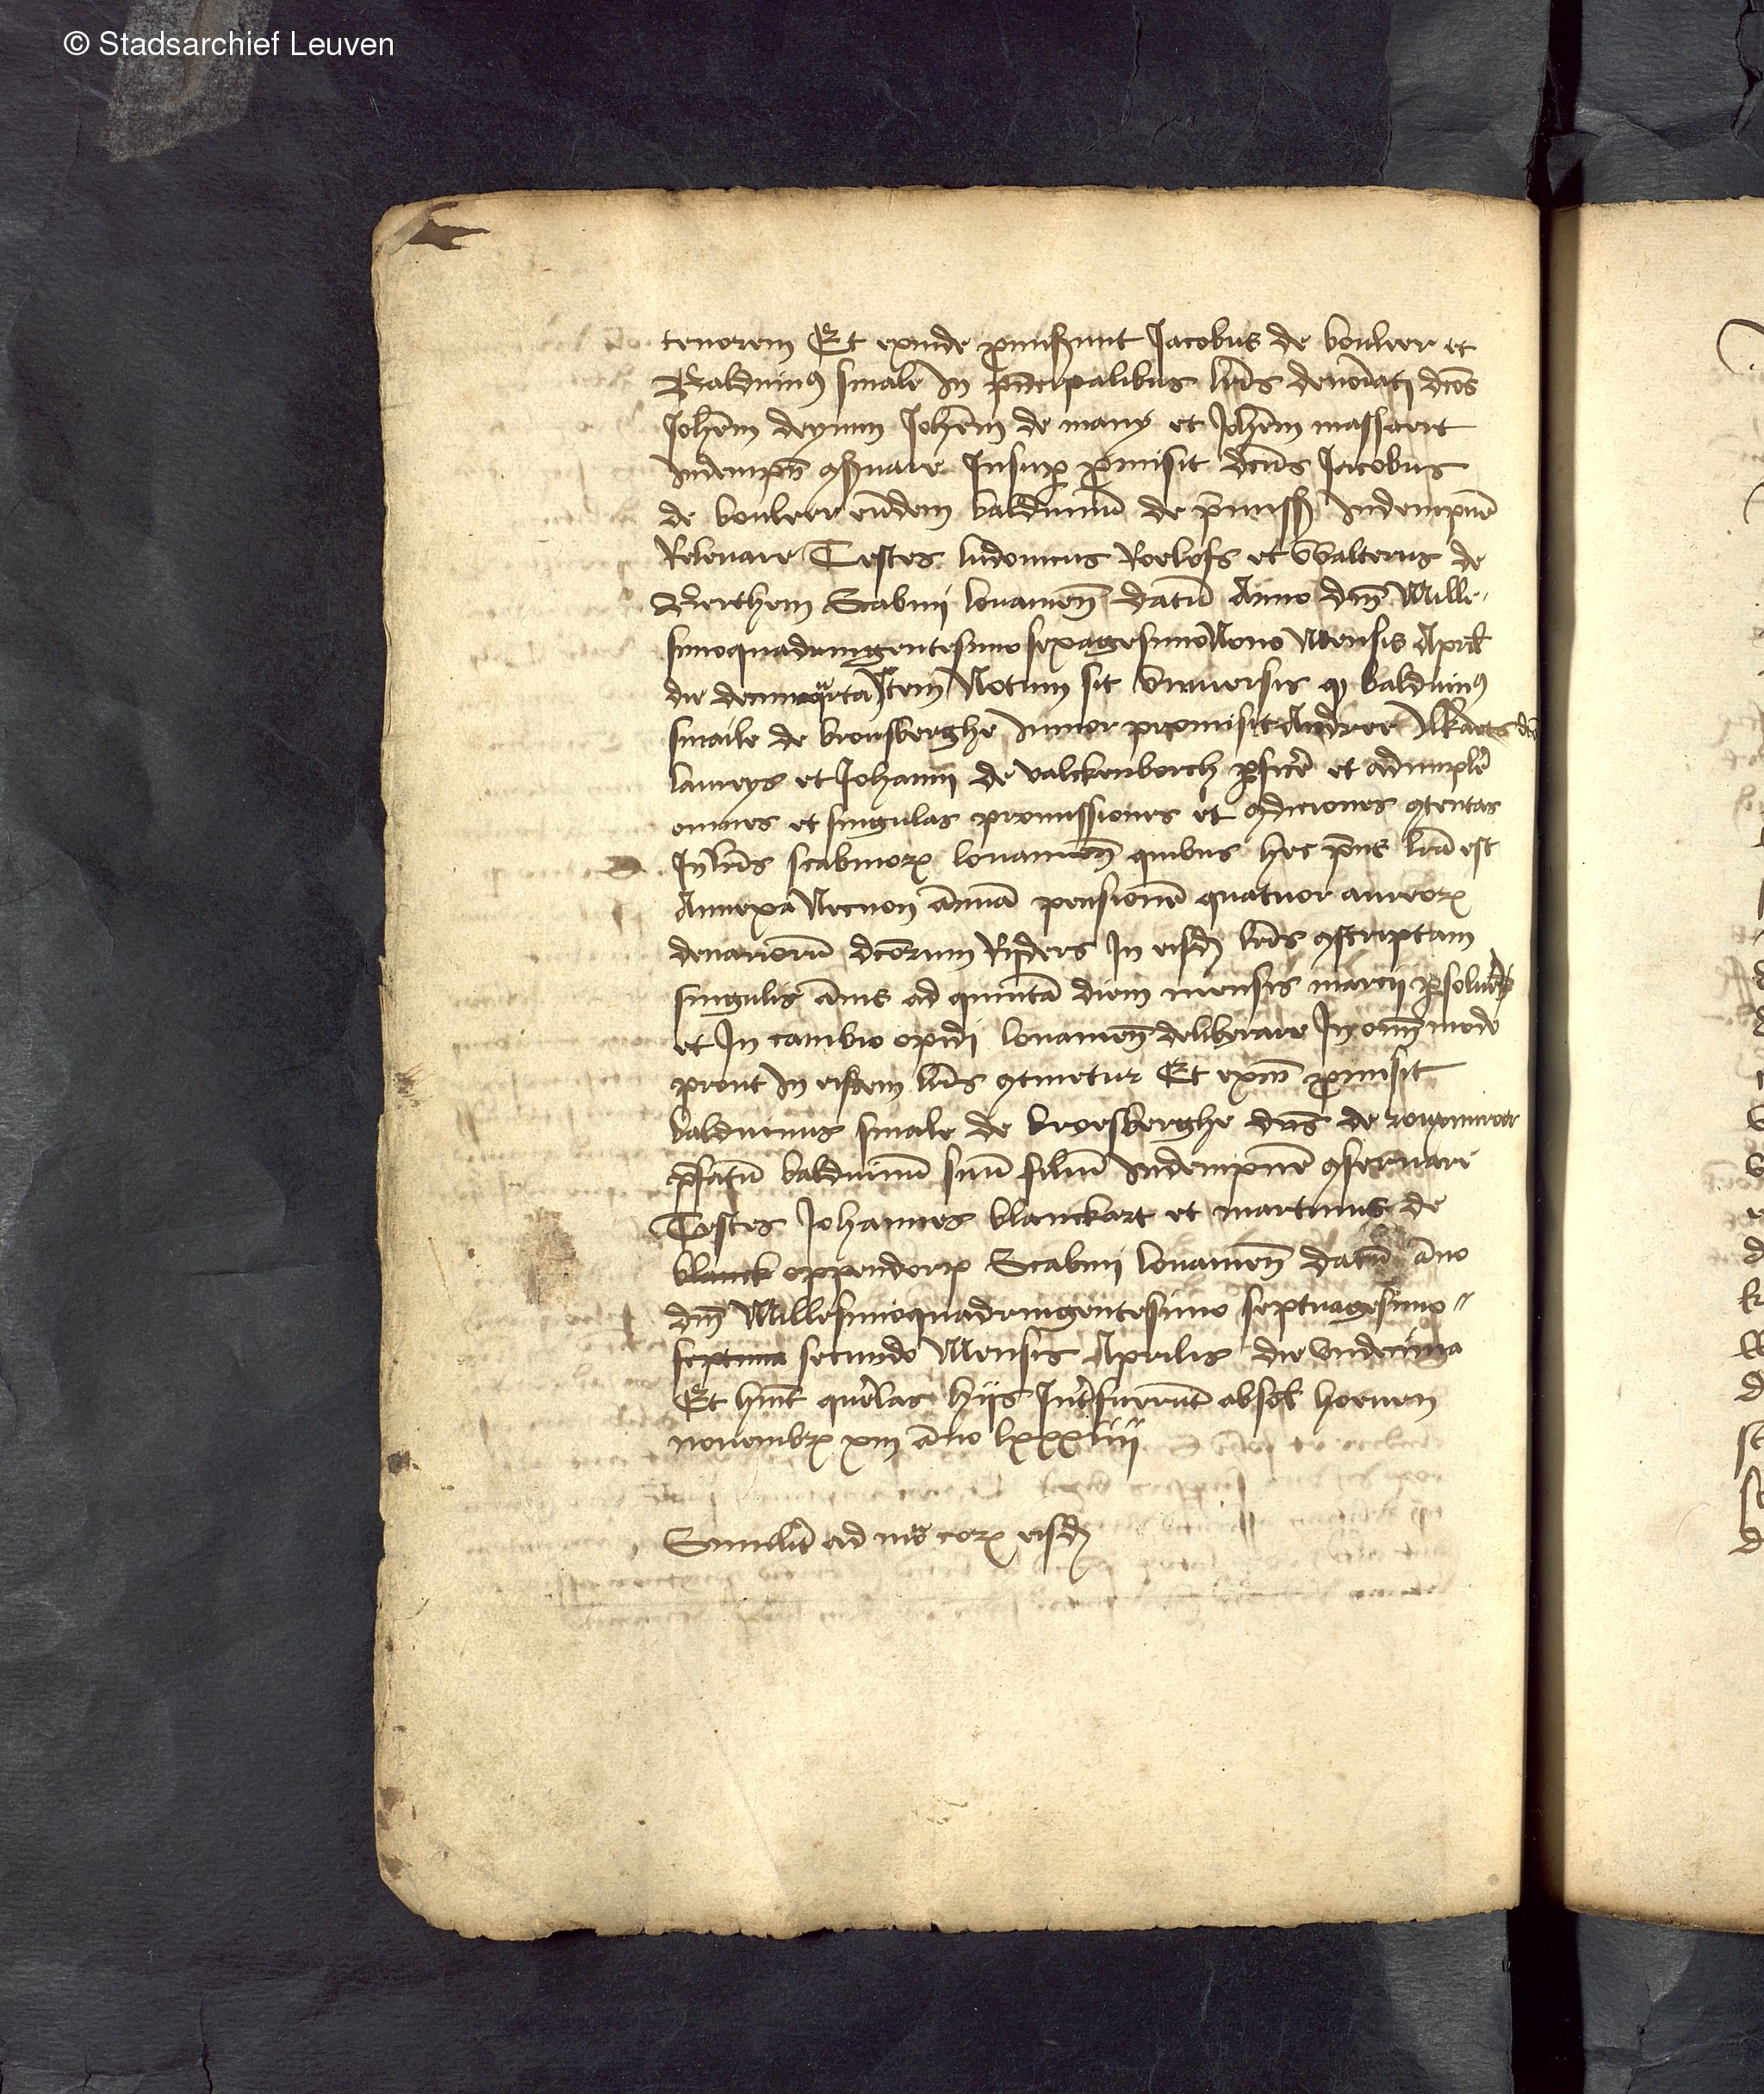 © Stadsarchief Leuven
tenorem Et exinde promiserunt Jacobus de bouleer et
Balduinus smale in principalibus litteris denominati dictos
Johannem deynum Johannem de many et Johannem massaert
indempnes conservare Insuper promisit dictus Jacobus
de bouleer eundem balduinum de premissis indempnem
Relevare Testes ludovicus Roelofs et Walterus de
Berthem Scabini lovanienses datum Anno domini Mille-
simoquadringentesimo sexagesimo Nono Mensis Aprilis
die decimaquarta Item Notum sit Universis quod balduinus
smaile de brousberghe Junior promisit Andree
laureys et Johanni de valckenborch perficere et adimplere
omnes et singulas promissiones et condiciones contentas
In litteris scabinorum lovaniensium quibus hec presens littera est
Annexa Necnon annuam pensionem quatuor aureorum
denariorum dictorum Ryders In eisdem litteris conscriptam
singulis annis ad quintam diem mensis marcii persolvere
et In cambio opidi lovaniensis deliberare In omni modo
prout in eisdem litteris continetur Et exinde promisit
balduinus smale de broesberghe dominus de
prefatum balduinum suum filium indempnem conservare
Testes Johannes blanckart et martinus de
blanck oppendorp Scabini lovanienses datum anno
domini Millesimoquadringentesimo septuagesimo
septima secundo Mensis Aprilis die undecima
Et hinc querelas hiis Interfuerunt absoloens hoeven
novembris xiii anno lxxxiiii
Similiter ad eorum eisdem